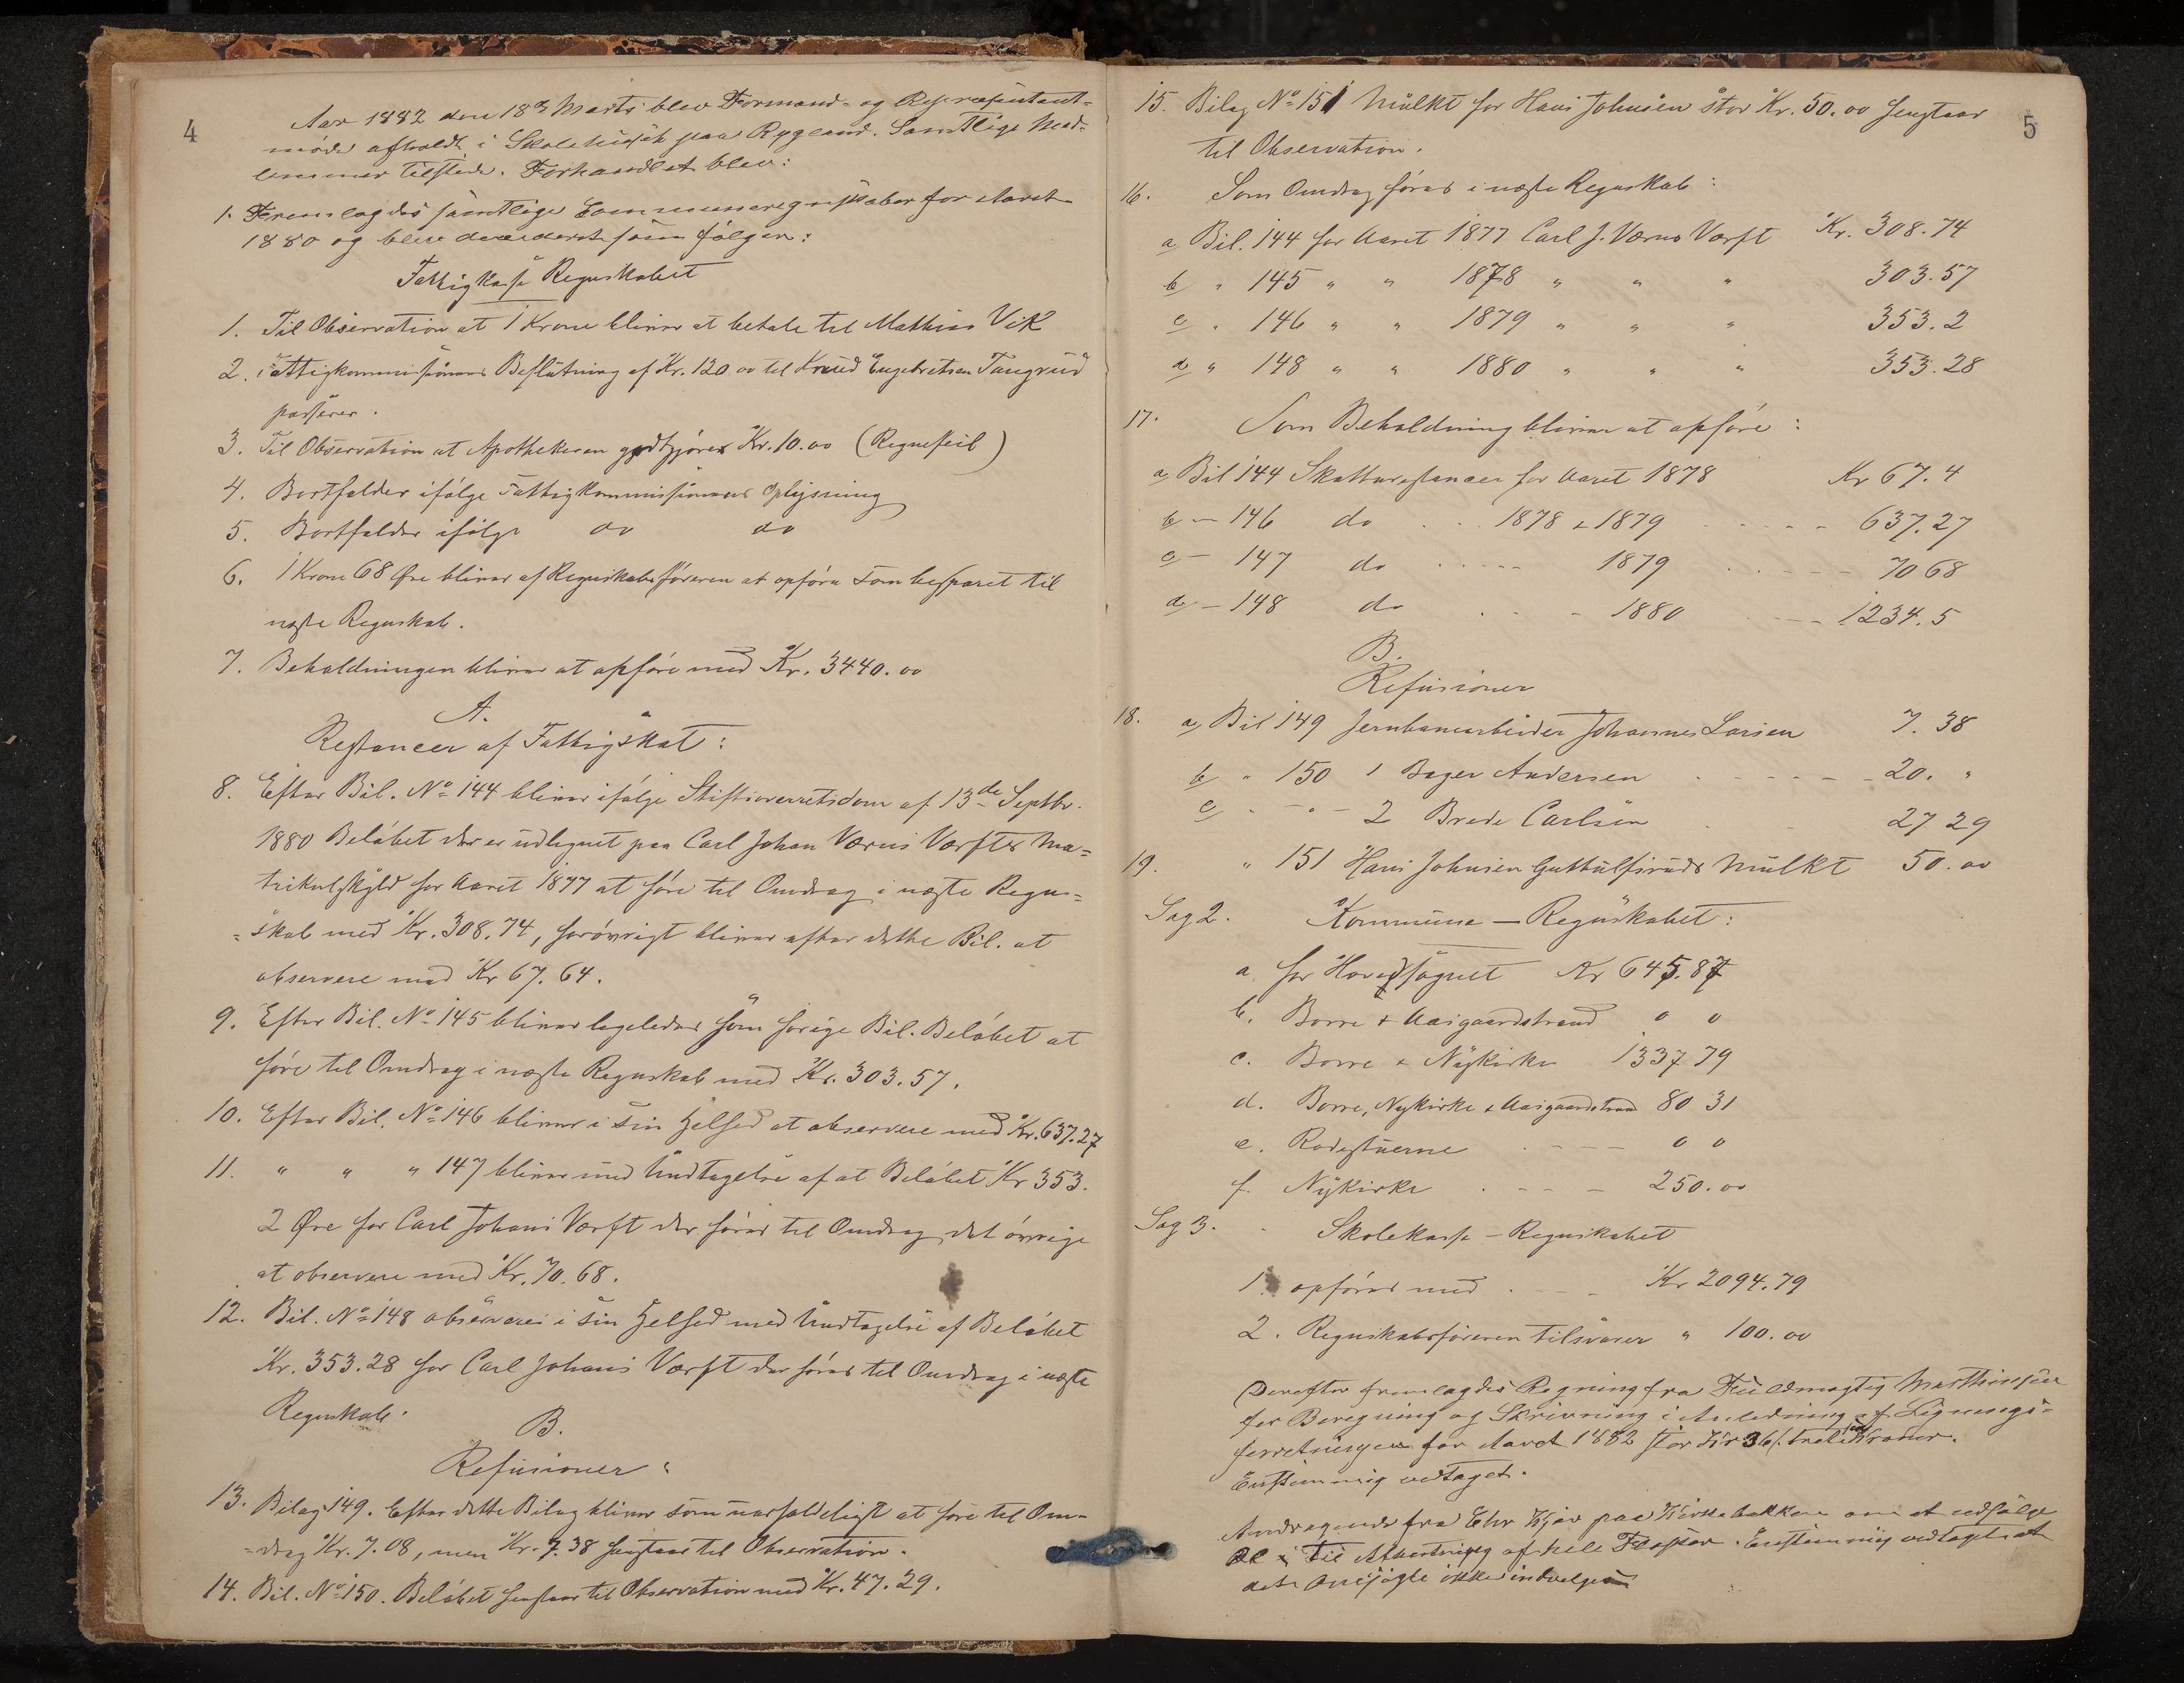 4
Aar 1882 den 18de Marts blev Formand- og Repræsentant-
møde afholdt i Skolehuset paa Rygland. Samtlige Med-
lemmer tilstede. Forhandlet blev:
1. Fremlagdes samtlige Communeregnskaber for Aaret
1880 og blev desideret som følger:
Fattigkasse Regnskabet
1. Til Observation at 1 Krone bliver at betale til Mathias Vik
2. Fattigkommissionens Beslutning af Kr. 120.00 til Knud Engebretsen Tangrud
passerer.
3. Til Observation at Apothekeren godtgjøres Kr. 10.00 (Regnefeil)
4. Bortfalder ifølge Fattigkommissionens Oplysning
5. Bortfalder ifølge do do
6. 1 Krone 68 Øre bliver af Regnskabsføreren at opføre som besparet til
næste Regnskab.
7. Beholdningen bliver at opføre med Kr. 3440.00
A.
Restancer af Fattigskat:
8. Efter Bil. No 144 bliver ifølge Stiftsoverretsdom af 13de Septbr.
1880 Beløbet der er udlignet paa Carl Johan Værns Værfts Ma=
trikulskyld for Aaret 1877 at føre til Omdrag i næste Regn=
=skab med Kr. 308.74, forøvrigt bliver efter dette Bil. at
observere med Kr 67.64.
9. Efter Bil. No 145 bliver ligeledes som forige Bil. Beløbet at
føre til Omdrag i næste Regnskab med Kr. 303.57.
10. Efter Bil. No 146 bliver i sin Helhed at observere med Kr. 637.27
11. " " " 147 bliver med Undtagelse af at Beløbet Kr 353.
2 Øre for Carl Johans Værft der føres til Omdrag det øvrige
at observere med Kr. 70.68.
12. Bil. No 148 observeres i sin Helhed med Undtagelse af Beløbet
Kr. 353.28 for Carl Johans Værft der føres til Omdrag i næste
Regnskab.
B.
Refusioner:
13. Bilag 149. Efter dette Bilag bliver som uerholdeligt at føre til Om-
=drag Kr. 7.08, men Kr. 7.38 henstaar til Observation.
14. Bil. No 150. Beløbet henstaar til Observation med Kr. 47.29.
5
15. Bilag No 151 Mulkt for Hans Johnsen stor Kr. 50.00 henstaar
til Observation.
16. Som Omdrag føres i næste Regnskab:
a Bil. 144 for Aaret 1877 Carl J. Værns Værft Kr. 308.74
b " 145 " " 1878 " " " 303.57
c " 146 " " 1879 " " " 353.2
d " 148 " " 1880 " " " 353.28
17. Som Beholdning bliver at opføre:
a, Bil 144 Skatterestancer for Aaret 1878 Kr 67.4
b - 146 do 1878 & 1879 637.27
c - 147 do 1879 70 68
d - 148 do 1880 1234.5
B.
Refusioner
18. a, Bil 149 Jernbanearbeider Johannes Larsen 7.38
b " 150 1 Bager Andersen 20. "
c - " - 2 Brede Carlsen 27 29
19. " 151 Hans Johnsen Guttulfsruds Mulkt 50.00
Sag 2. Kommune - Regnskabet:
a for Hovedsognet Kr 645.87
b. Borre & Aasgaardstrand 0 0
c. Borre & Nykirke 1337 79
d. Borre, Nykirke & Aasgaardstrand 80 31
e. Rodestuerne 0 0
f. Nykirke 250.00
Sag 3. Skolekasse - Regnskabet
1. opføres med Kr 2094.79
2. Regnskabsføreren tilsvarer " 100.00
Derefter fremlagdes Regning fra Fuldmægtig Marthinsen
for Beregning og Skrivning i Anledning af Lignings-
forretningen for Aaret 1882 stor Kr 36 Kroner.
Enstemmig vedtaget.
Andragende fra Ehr Kjær paa Kirkebakken om at udsælge
Øl til Afhentning af hele Flasker. Enstemmig vedtaget at
det Ansøgte ikke indvilges